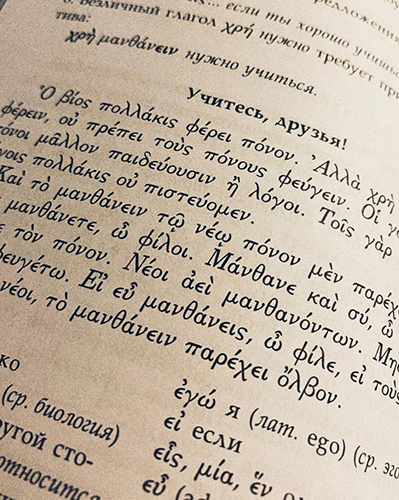 ... если ты хорошо учишься
6. Безличный глагол χρή нужно требует при
тива:
χρὴ μανθάνειν нужно учиться.
Учитесь, друзья!
Ὁ βίος πολλάκις φέρει πόνον. Ἀλλὰ χρὴ
φέρειν, οὐ πρέπει τοὺς πόνους φεύγειν. Οἱ γὰ
πόνοι μᾶλλον παιδεύουσιν ἢ λόγοι. Τοῖς γὰρ
γοις πολλάκις οὐ πιστεύομεν.
Καὶ τὸ μανθάνειν τῷ νέῳ πόνον μὲν παρέχε
μανθάνετε, ὦ φίλοι. Μάνθανε καὶ σύ, ὦ
ε τὸν πόνον. Νέοι ἀεὶ μανθανόντων. Μη
φευγέτω. Εἰ εὖ μανθάνεις, ὦ φίλε, εἰ τοὺς
νέοι, τὸ μανθάνειν παρέχει ὄλβον.
ко
(ср. биология)
ругой сто-
относится
ἐγώ я (лат. ego) (ср. эго
εἰ если
εἷς, μία, ἕν
εὖ